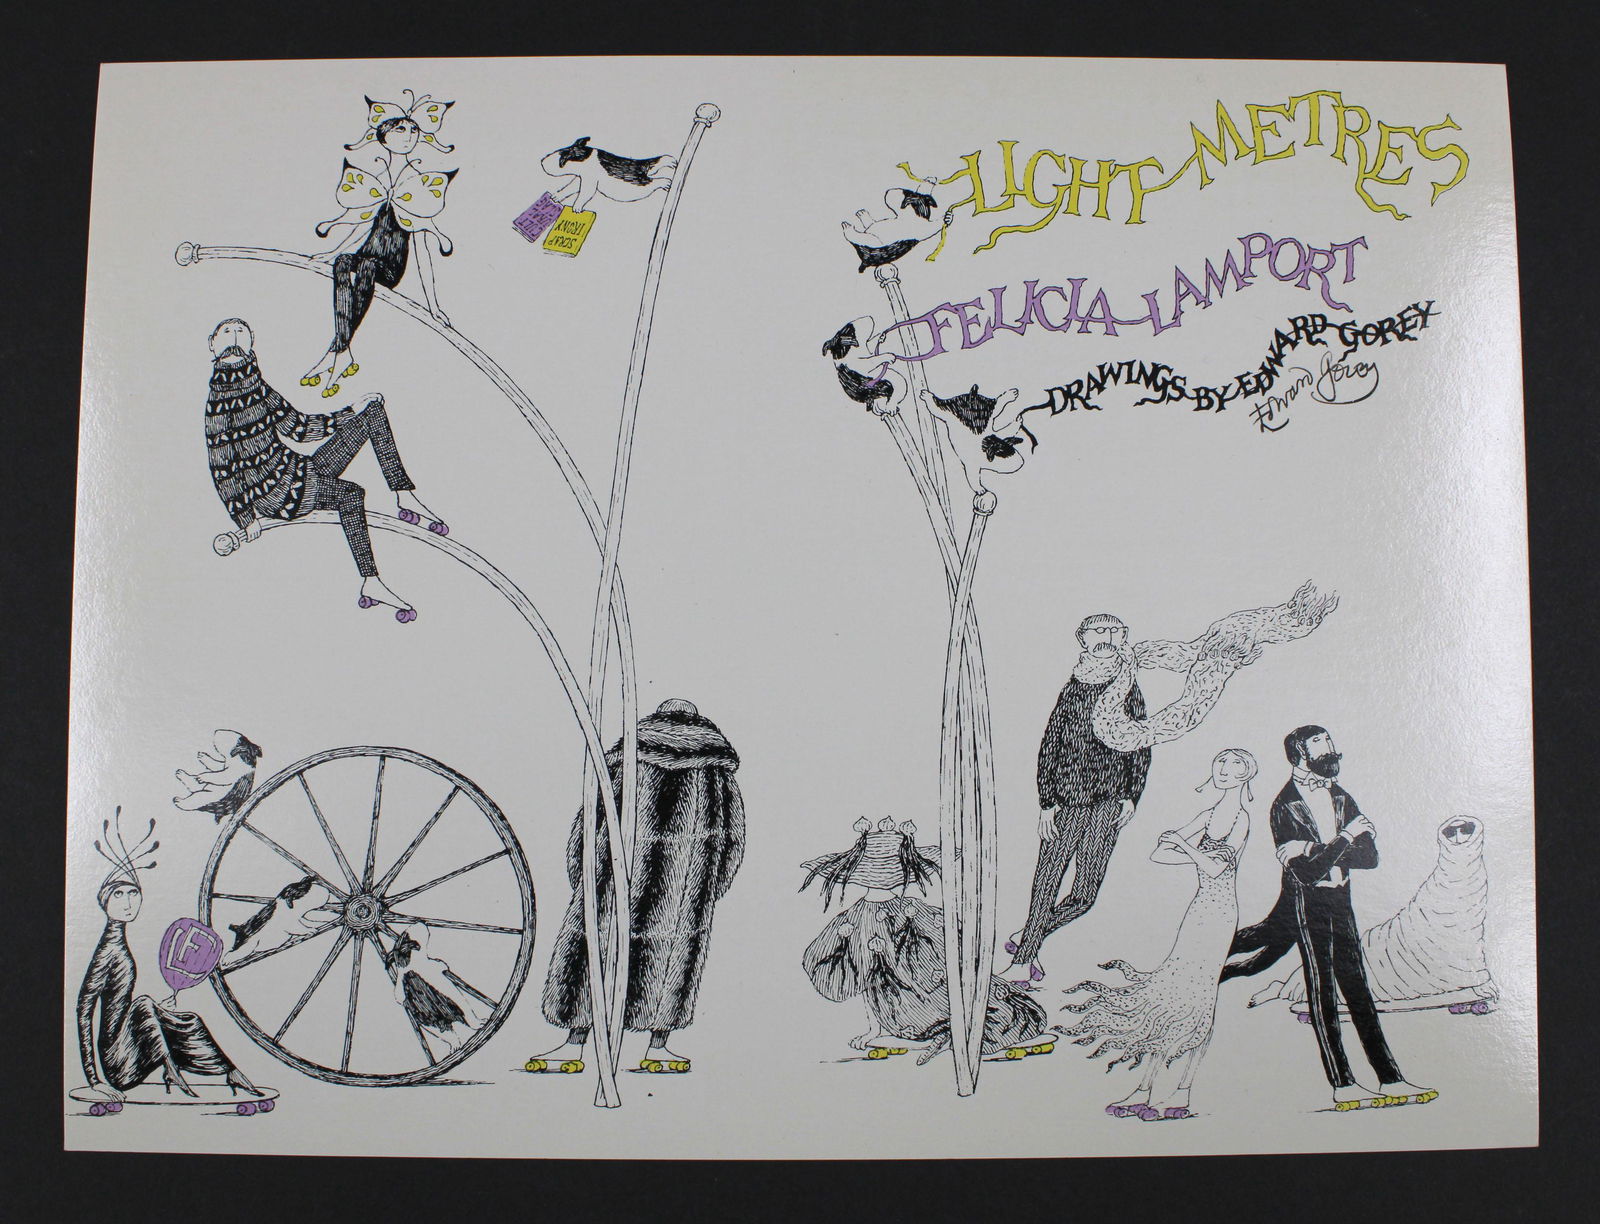 LIGHT METRES
FELICIA LAMPORT
DRAWINGS BY EDWARD GOREY
Edward Gorey
SCRAP
IRONY
CULTURAL